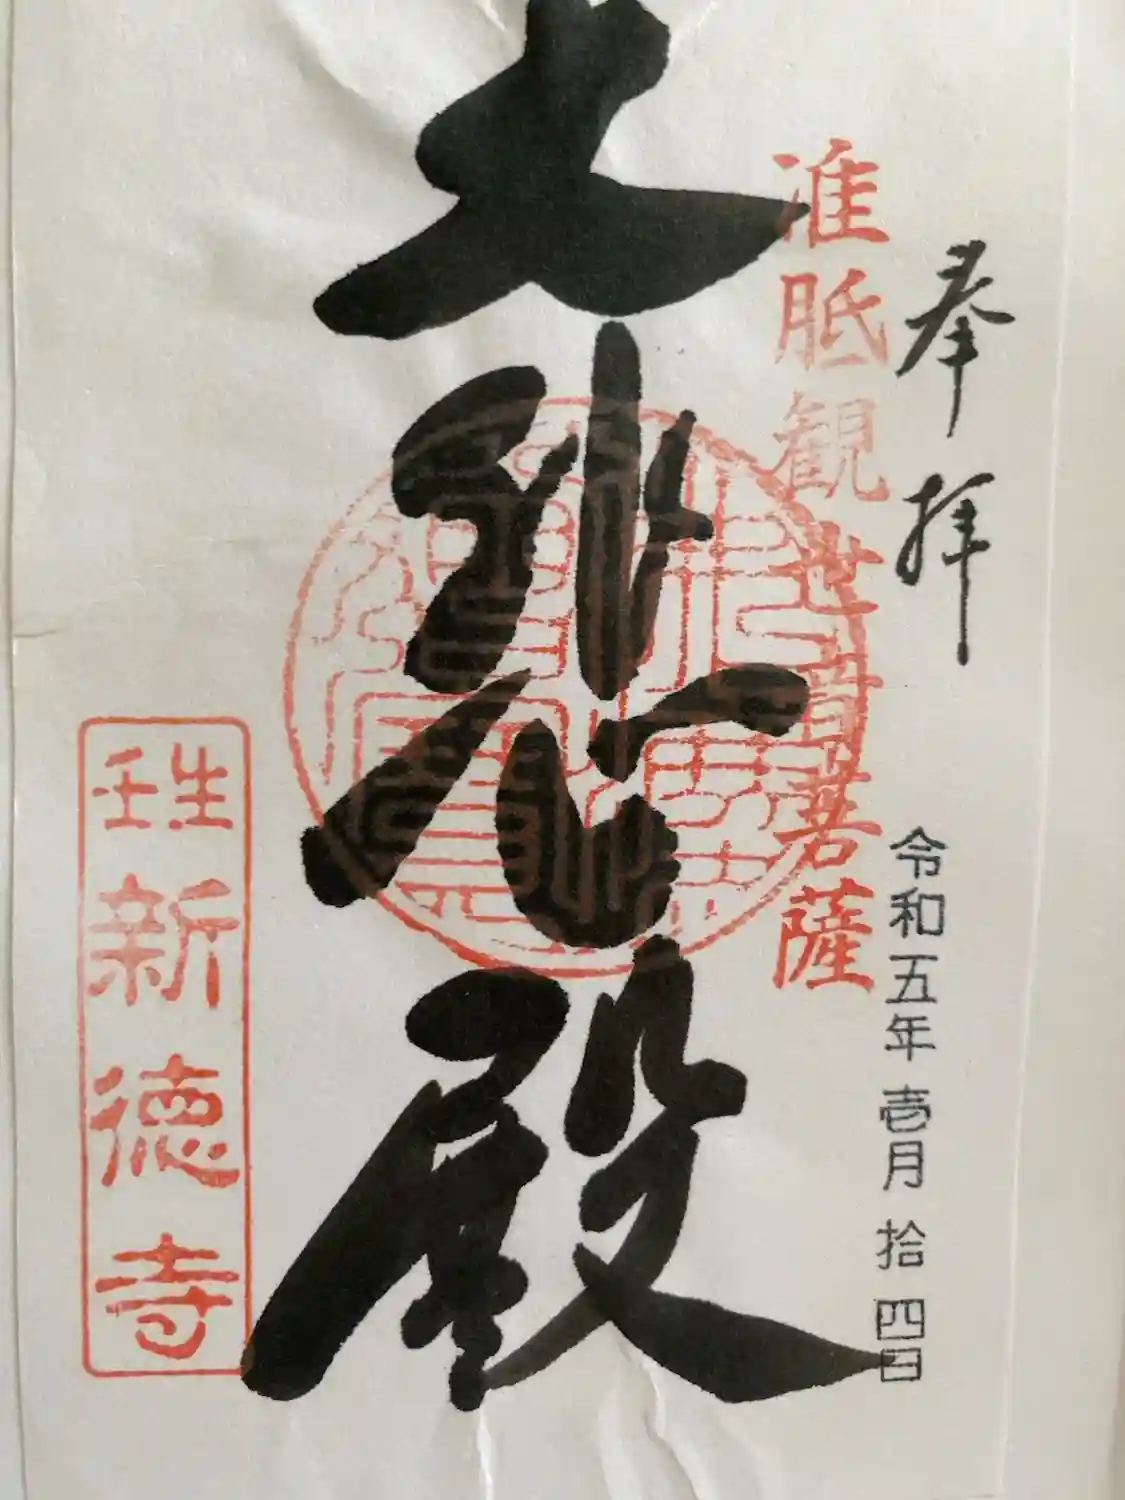 奉拝
令和五年壱月拾四日
准胝観世音菩薩
大悲殿
壬生新徳寺